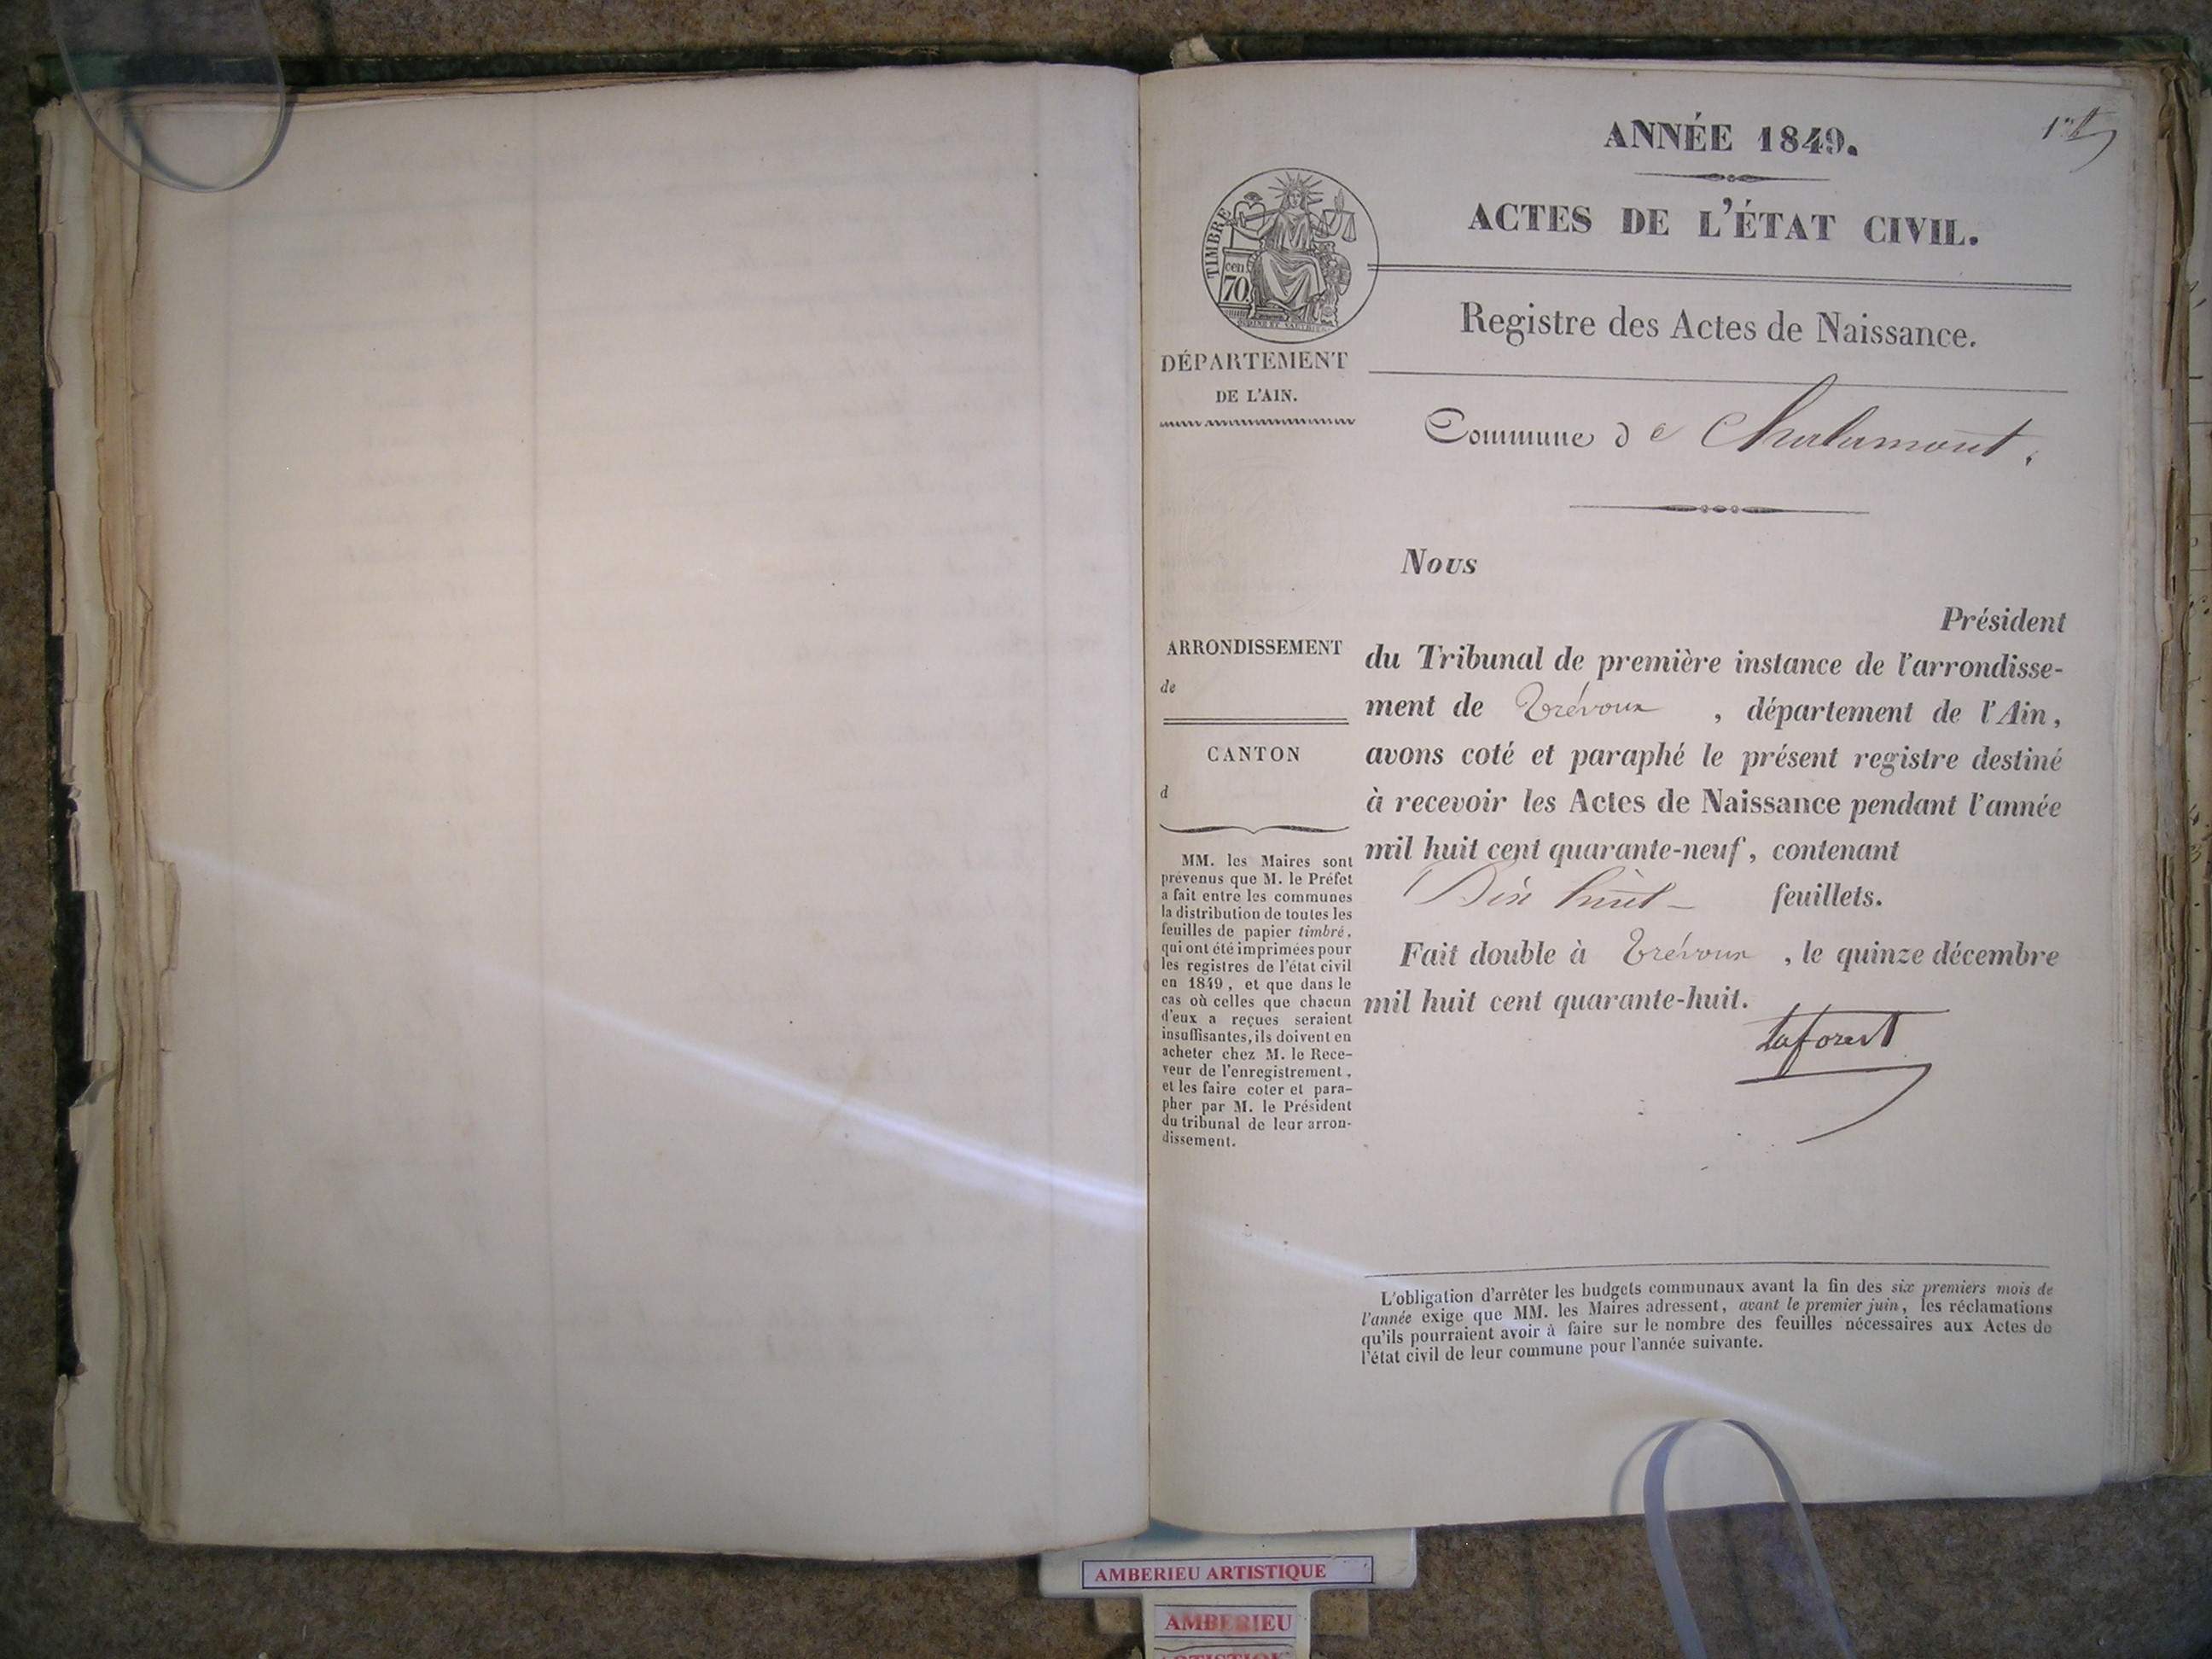 ANNÉE 1849.
ACTES DE L'ÉTAT CIVIL.
TIMBRE
cen
70
Registre des Actes de Naissance.
DÉPARTEMENT
DE L'AIN.
Commune de Chalamont.
Nous
Président
du Tribunal de première instance de l'arrondisse-
ment de Trévoux , département de l'Ain,
avons coté et paraphé le présent registre destiné
à recevoir les Actes de Naissance pendant l'année
mil huit cent quarante-neuf, contenant
Dix huit feuillets.
Fait double à Trévoux , le quinze décembre
mil huit cent quarante-huit.
Laforest
ARRONDISSEMENT
de
CANTON
d
MM. les Maires sont
prévenus que M. le Préfet
a fait entre les communes
la distribution de toutes les
feuilles de papier timbré,
qui ont été imprimées pour
les registres de l'état civil
en 1849, et que dans le
cas où celles que chacun
d'eux a reçues seraient
insuffisantes, ils doivent en
acheter chez M. le Rece-
veur de l'enregistrement,
et les faire coter et para-
pher par M. le Président
du tribunal de leur arron-
dissement.
L'obligation d'arrêter les budgets communaux avant la fin des six premiers mois de
l'année exige que MM. les Maires adressent, avant le premier juin, les réclamations
qu'ils pourraient avoir à faire sur le nombre des feuilles nécessaires aux Actes de
l'état civil de leur commune pour l'année suivante.
AMBERIEU ARTISTIQUE
AMBERIEU